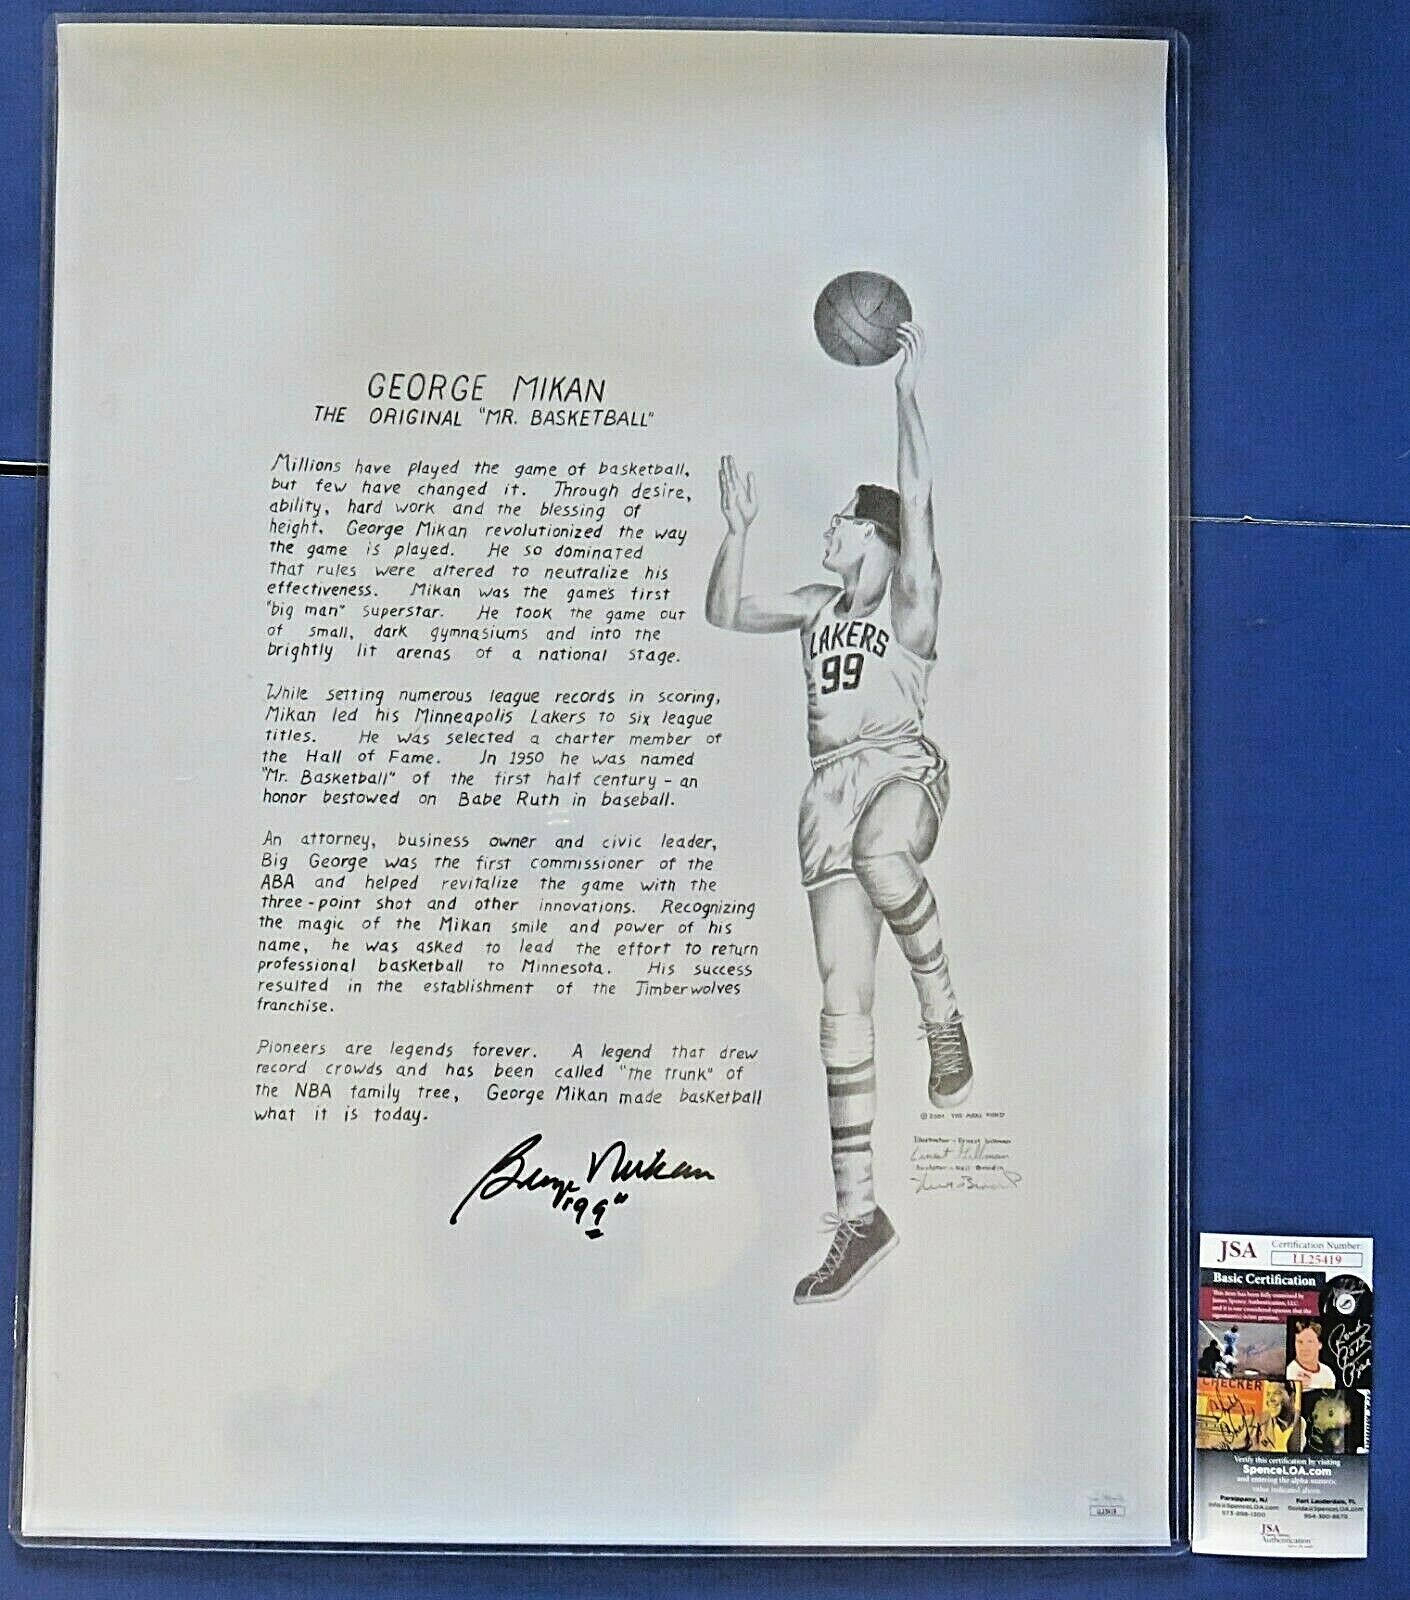 GEORGE MIKAN
THE ORIGINAL "MR. BASKETBALL"
Millions have played the game of basketball,
but few have changed it. Through desire,
ability, hard work and the blessing of
height. George Mikan revolutionized the way
the game is played. He so dominated
that rules were altered to neutralize his
effectiveness. Mikan was the game's first
"big man" superstar. He took the game out
of small, dark gymnasiums and into the
brightly lit arenas of a national stage.
While setting numerous league records in scoring,
Mikan led his Minneapolis Lakers to six league
titles. He was selected a charter member of
the Hall of Fame. In 1950 he was named
"Mr. Basketball" of the first half century - an
honor bestowed on Babe Ruth in baseball.
An attorney, business owner and civic leader,
Big George was the first commissioner of the
ABA and helped revitalize the game with the
three-point shot and other innovations. Recognizing
the magic of the Mikan smile and power of his
name, he was asked to lead the effort to return
professional basketball to Minnesota. His success
resulted in the establishment of the Timberwolves
franchise.
Pioneers are legends forever. A legend that drew
record crowds and has been called "the trunk" of
the NBA family tree, George Mikan made basketball
what it is today.
George Mikan
"99"
LAKERS
99
© 2001
Illustrator - Ernest
Ernest Hillman
Sculptor - Neil Brodin
JSA Certification Number:
LL25419
Basic Certification
This item has been fully examined by
James Spence Authentication, LLC
and it is our considered opinion that the
signature(s) is/are genuine.
CHECKER
Verify this certification by visiting
SpenceLOA.com
and entering the alpha-numeric
value indicated above.
Parsippany, NJ
info@SpenceLOA.com
973-898-1300
Fort Lauderdale, FL
florida@SpenceLOA.com
954-300-8670
JSA
Authentication
LL25419